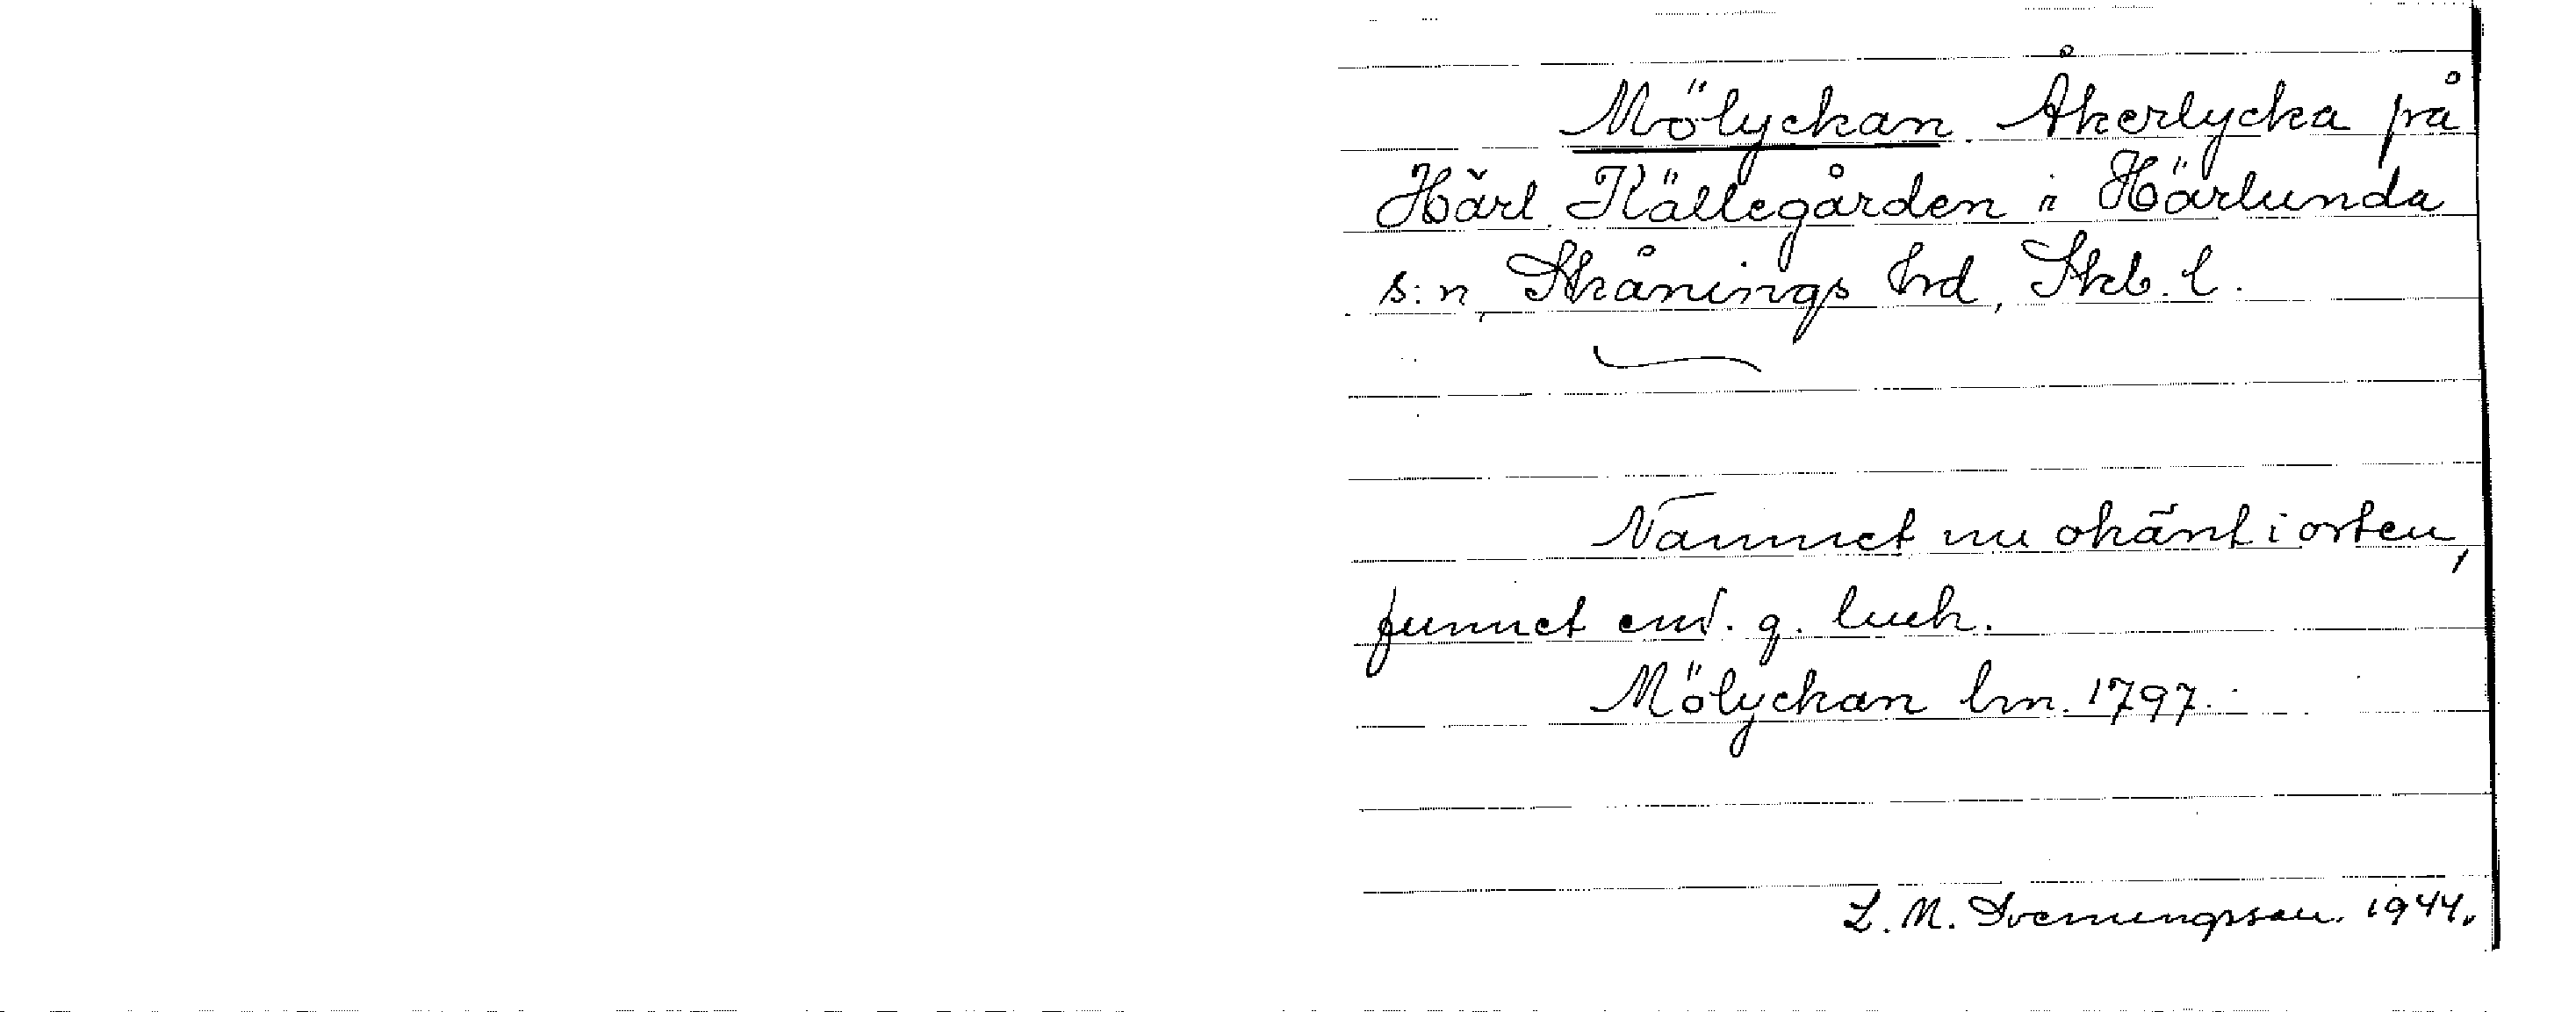 Mölyckan. Åkerlycka på
Härl. Källegården i Härlunda
s:n, Skånings hd, Skb. l.
Namnet nu okänt i orten,
funnet end. g. luck.
Mölyckan lm. 1797.
L. M. Svenungsson. 1944.